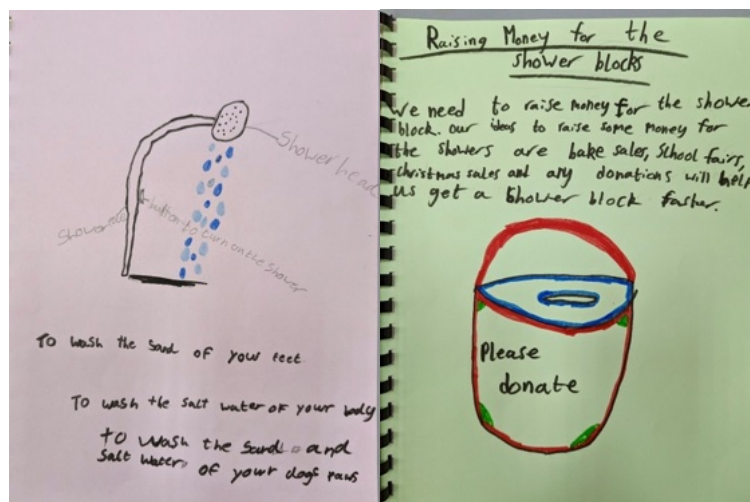 Shower head
button to turn on the shower
To wash the sand of your feet
To wash the salt water of your body
To wash the sand and
salt water of your dogs paws
Raising Money for the
shower blocks
We need to raise money for the shower
block. our ideas to raise some money for
the showers are bake sales, School fairs,
christmas sales and any donations will help
us get a shower block faster.
Please
donate